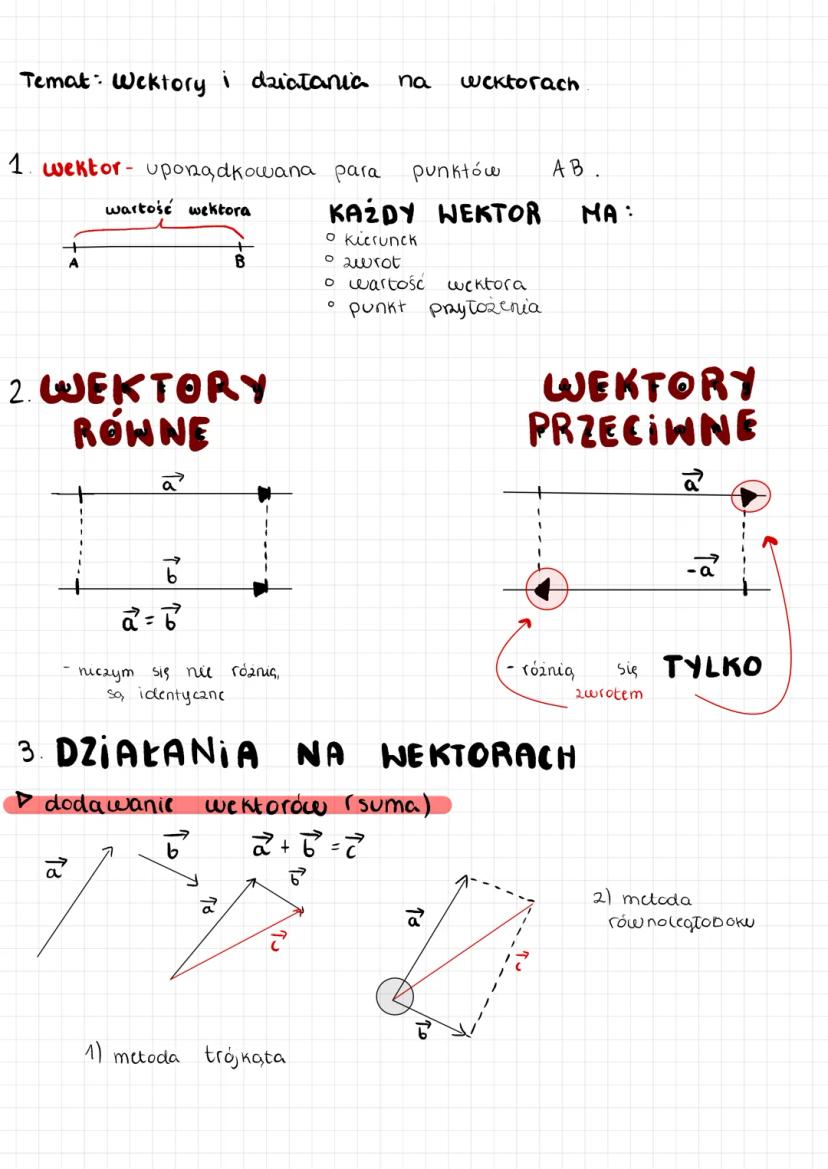 Temat: Wektory i działania na wektorach.
1. wektor - uporządkowana para punktów AB.
wartość wektora
A B
KAŻDY WEKTOR MA:
kierunek
zwrot
wartość wektora
punkt przyłożenia
2. WEKTORY
RÓWNE
a
b
a = b
- niczym się nie różnią,
są identyczne
WEKTORY
PRZECIWNE
a
-a
- różnią się TYLKO
zwrotem
3. DZIAŁANIA NA WEKTORACH
dodawanie wektorów (suma)
a
b
a + b = c
a
b
c
1) metoda trójkąta
a
b
c
2) metoda
równoległoboku